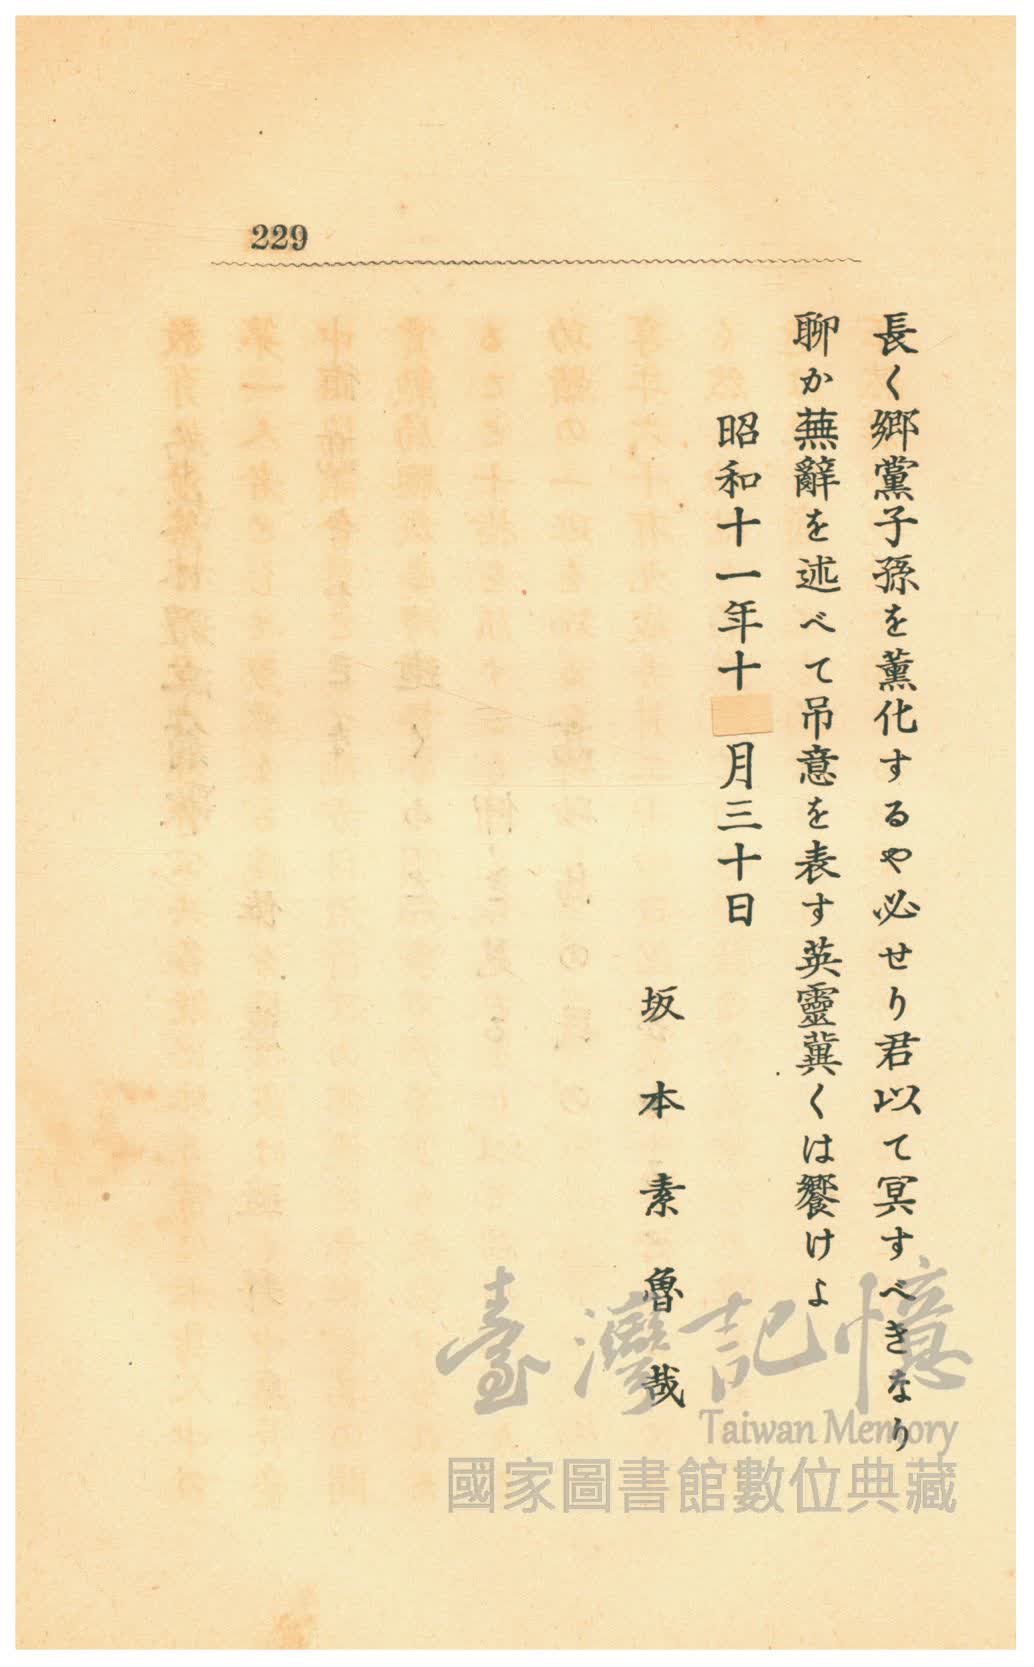 229
長く鄉黨子孫を薰化するや必せり君以て冥すべきなり
聊か蕪辭を述べて吊意を表す英靈冀くは饗けよ
昭和十一年十月三十日
坂本素魯哉
臺灣記憶
Taiwan Memory
國家圖書館數位典藏